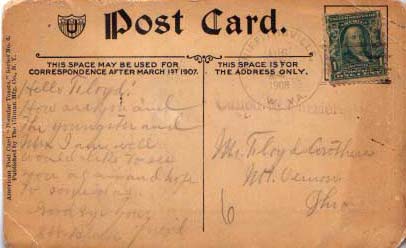 Post Card.
THIS SPACE MAY BE USED FOR
CORRESPONDENCE AFTER MARCH 1ST 1907.
THIS SPACE IS FOR
THE ADDRESS ONLY.
American Post Card "Popular Toasts," Series No. 6.
Published by The Ullman Mfg. Co., N. Y.
1908
Hello Floyd!
How are you and
the youngster and
Mrs I am well
would like to see
you again and hope
to someday.
Good bye your
friend
Mr. Floyd
Mt. Vernon
Ohio
6